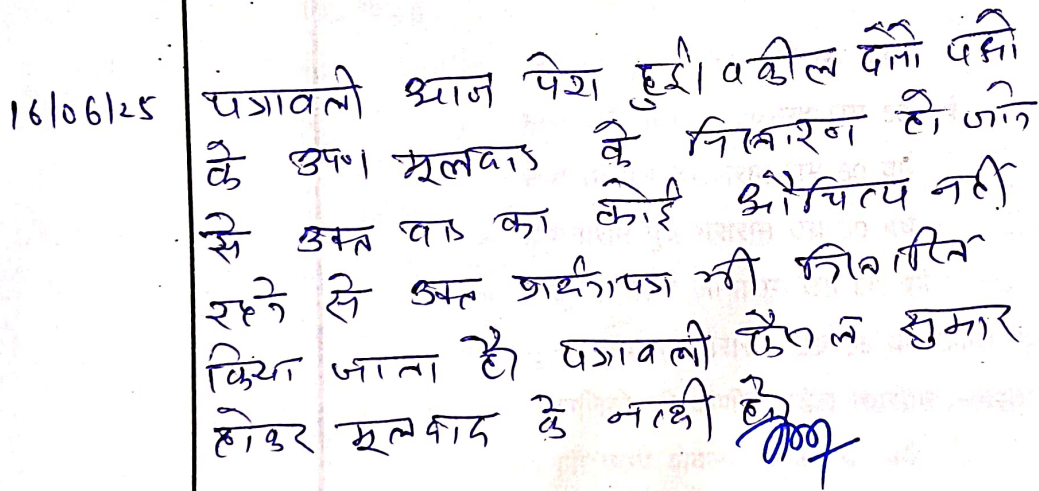 16/06/25 पत्रावली आज पेश हुई। वकील दोनों पक्षों
के उप०। मूलवाद के निस्तारण हो जाने
से उक्त वाद का कोई औचित्य नहीं
रहने से उक्त प्रार्थनापत्र भी निस्तारित
किया जाता है। पत्रावली फैसल सुमार
होकर मूलवाद के नत्थी हो।